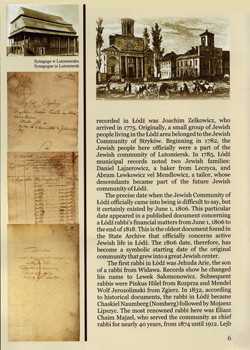 Synagoga w Lutomiersku
Synagogue in Lutomiersk
recorded in Łódź was Joachim Zelkowicz, who
arrived in 1775. Originally, a small group of Jewish
people living in the Łódź area belonged to the Jewish
Community of Stryków. Beginning in 1782, the
Jewish people here officially were a part of the
Jewish community of Lutomiersk. In 1785, Łódź
municipal records noted two Jewish families:
Daniel Lajzerowicz, a baker from Łęczyca, and
Abram Lewkowicz vel Mendlowicz, a tailor, whose
descendants became part of the future Jewish
community of Łódź.
The precise date when the Jewish Community of
Łódź officially came into being is difficult to say, but
it certainly existed by June 1, 1806. This particular
date appeared in a published document concerning
a Łódź rabbi's financial matters from June 1, 1806 to
the end of 1818. This is the oldest document found in
the State Archive that officially concerns active
Jewish life in Łódź. The 1806 date, therefore, has
become a symbolic starting date of the original
community that grew into a great Jewish center.
The first rabbi in Łódź was Jehuda Arie, the son
of a rabbi from Widawa. Records show he changed
his name to Lewek Salomonowicz. Subsequent
rabbis were Pinkus Hillel from Rozprza and Mendel
Wolf Jerozolimski from Zgierz. In 1832, according
to historical documents, the rabbi in Łódź became
Chaskiel Naumberg (Nomberg) followed by Mojżesz
Lipszyc. The most renowned rabbi here was Eliasz
Chaim Majzel, who served the community as chief
rabbi for nearly 40 years, from 1874 until 1912. Lejb
6